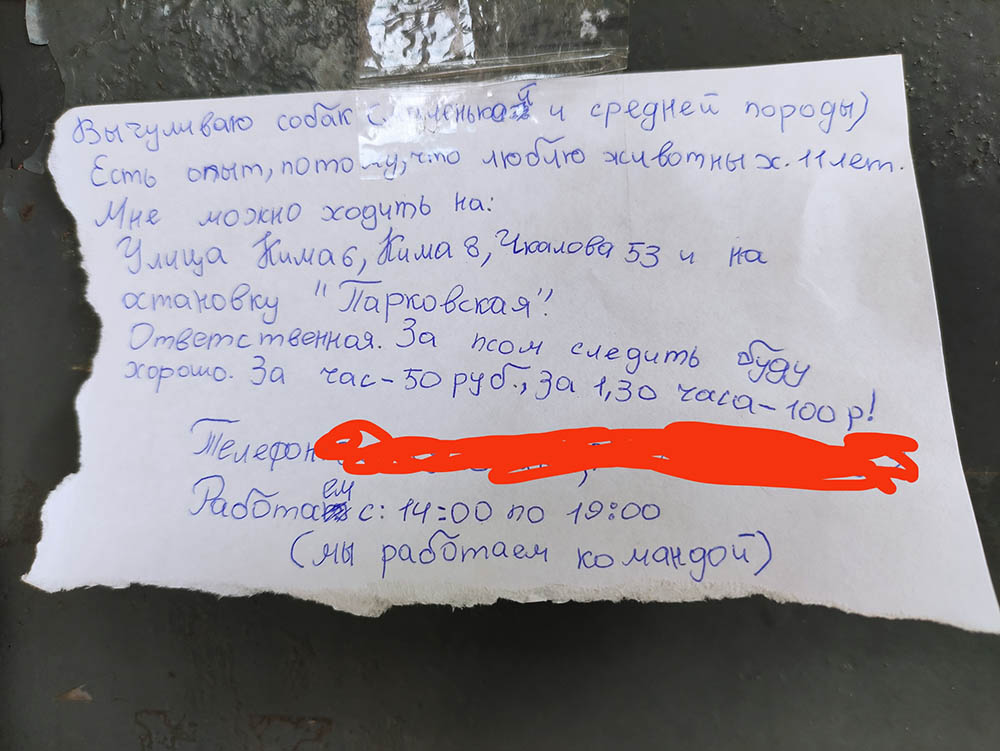 Выгуливаю собак (маленькой и средней породы)
Есть опыт, потому, что люблю животных. 11 лет.
Мне можно ходить на:
Улица Кима 6, Кима 8, Чкалова 53 и на
остановку "Парковская".
Ответственная. За псом следить буду
хорошо. За час - 50 руб., за 1,30 часа - 100 р!
Телефон
Работаем с: 14:00 по 19:00
(мы работаем командой)